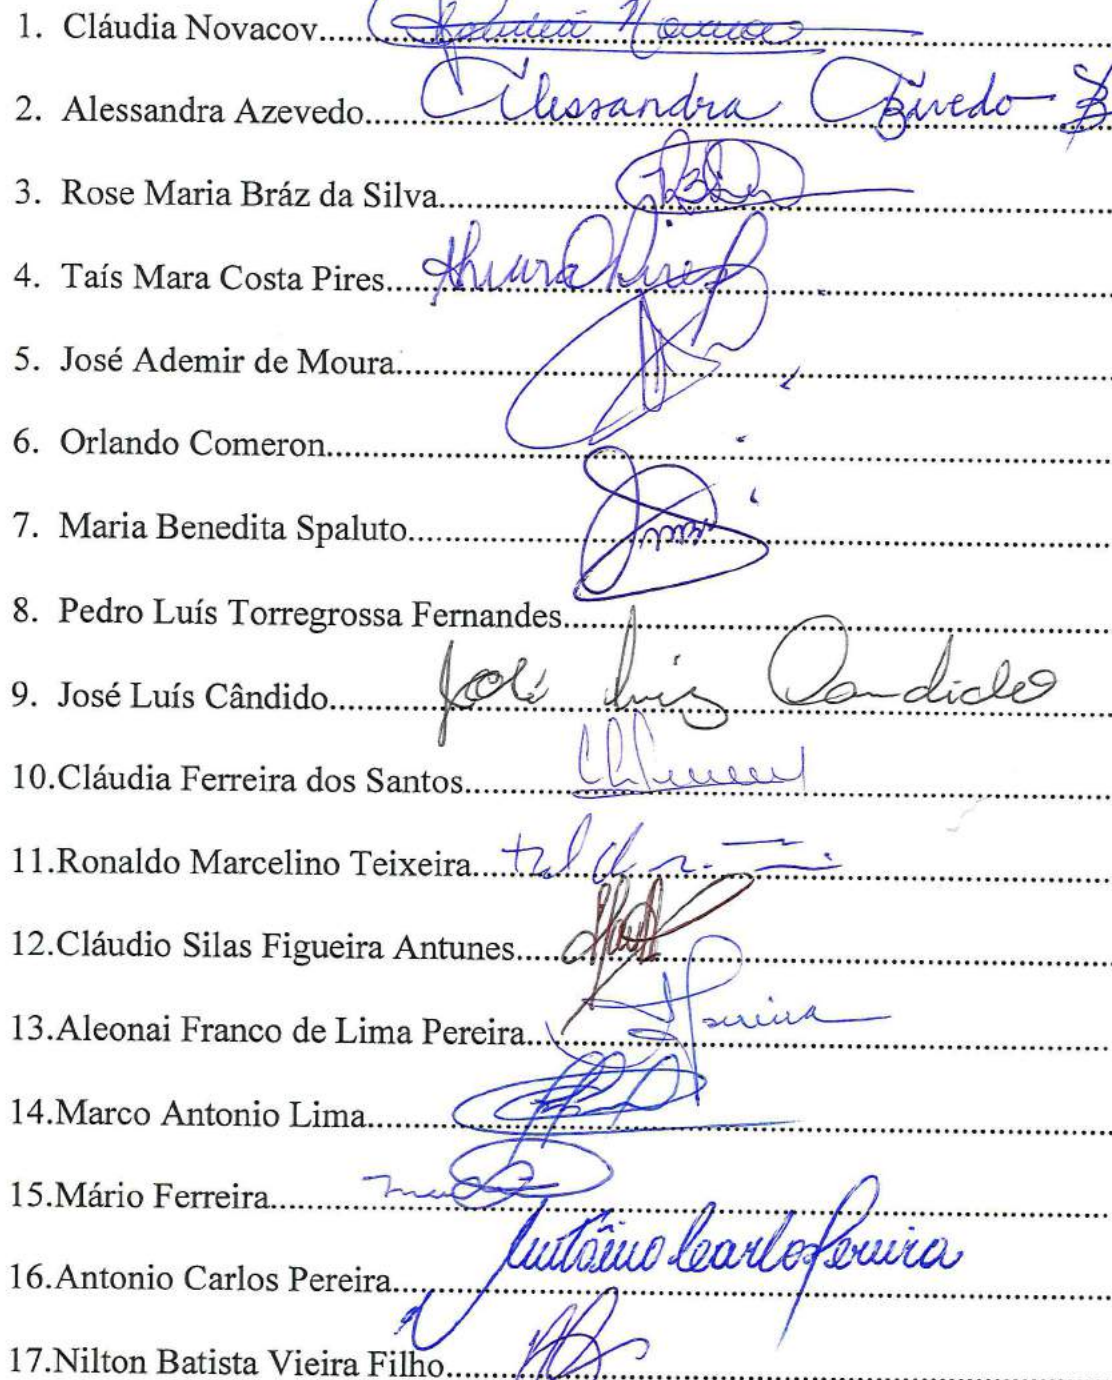 1. Cláudia Novacov.....
2. Alessandra Azevedo..... Alessandra Azevedo
3. Rose Maria Bráz da Silva.....
4. Taís Mara Costa Pires.....
5. José Ademir de Moura.....
6. Orlando Comeron.....
7. Maria Benedita Spaluto.....
8. Pedro Luís Torregrossa Fernandes.....
9. José Luís Cândido..... José Luiz Candido
10.Cláudia Ferreira dos Santos.....
11.Ronaldo Marcelino Teixeira.....
12.Cláudio Silas Figueira Antunes.....
13.Aleonai Franco de Lima Pereira..... Pereira
14.Marco Antonio Lima.....
15.Mário Ferreira.....
16.Antonio Carlos Pereira..... Antônio Carlos Pereira
17.Nilton Batista Vieira Filho.....